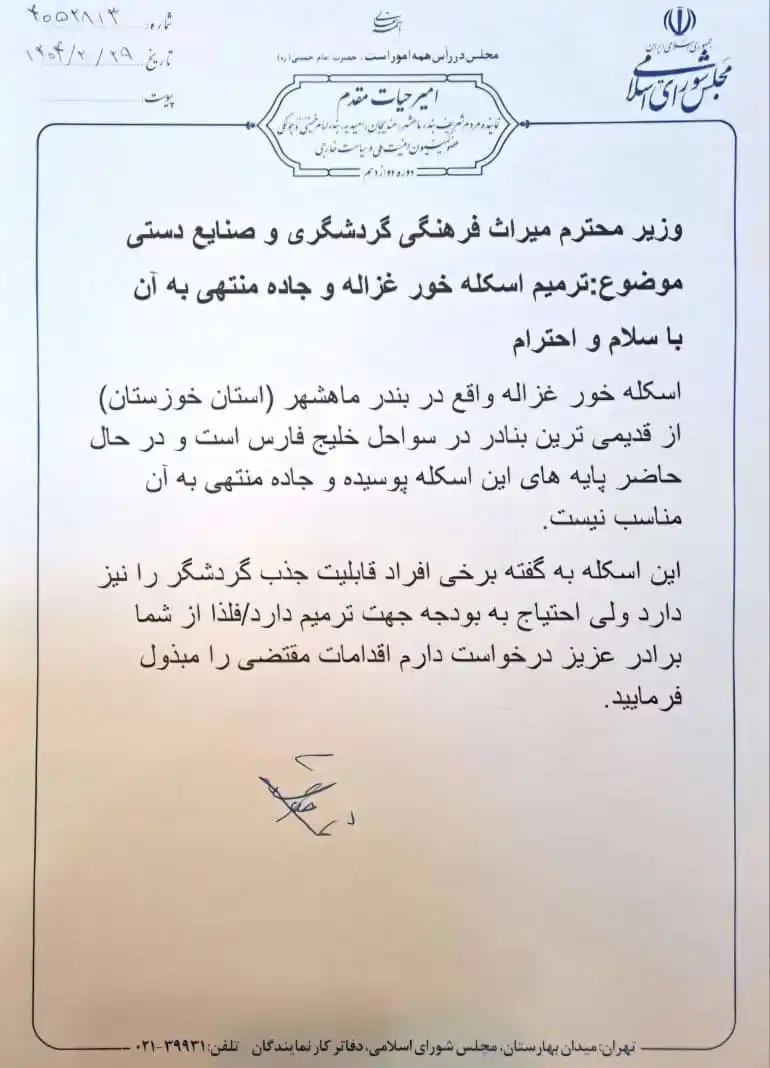 شماره: ۴۰۵۲۸۱۳
تاریخ: ۱۴۰۴/۲/۲۹
پیوست:
مجلس در رأس همه امور است، حضرت امام خمینی (ره)
جمهوری اسلامی ایران
مجلس شورای اسلامی
امیر حیات مقدم
نماینده مردم شریف بندر ماهشهر، هندیجان، امیدیه، بندر امام خمینی و جولکی
عضو کمیسیون امنیت ملی و سیاست خارجی
دوره دوازدهم
وزیر محترم میراث فرهنگی گردشگری و صنایع دستی
موضوع:ترمیم اسکله خور غزاله و جاده منتهی به آن
با سلام و احترام
اسکله خور غزاله واقع در بندر ماهشهر (استان خوزستان)
از قدیمی ترین بنادر در سواحل خلیج فارس است و در حال
حاضر پایه های این اسکله پوسیده و جاده منتهی به آن
مناسب نیست.
این اسکله به گفته برخی افراد قابلیت جذب گردشگر را نیز
دارد ولی احتیاج به بودجه جهت ترمیم دارد/فلذا از شما
برادر عزیز درخواست دارم اقدامات مقتضی را مبذول
فرمایید.
تهران: میدان بهارستان، مجلس شورای اسلامی، دفاتر کار نمایندگان تلفن: ۳۹۹۳۱-۰۲۱